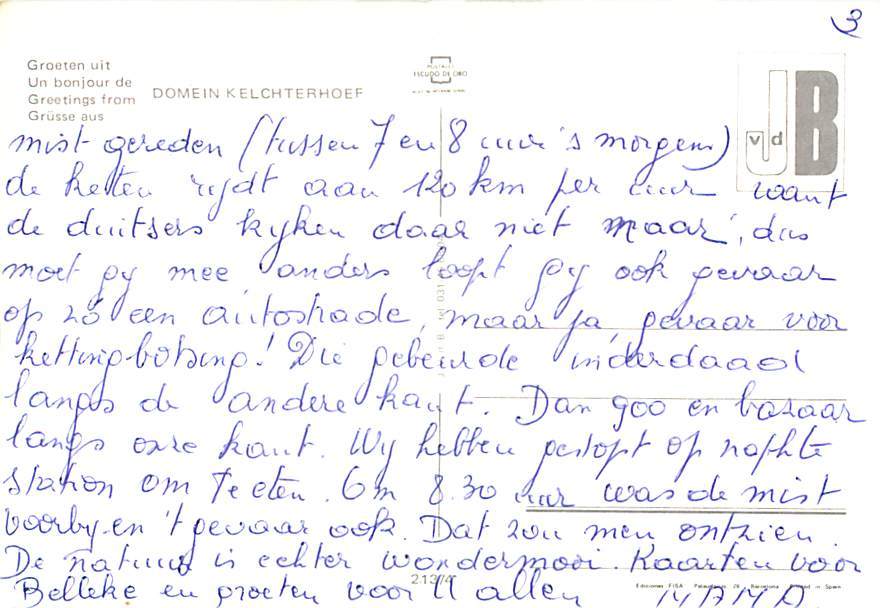 3
Groeten uit
Un bonjour de
Greetings from
Grüsse aus
DOMEIN KELCHTERHOEF
POSTALES
ESCUDO DE ORO
vJd B
mist gereden (tussen 7 en 8 uur 's morgens)
de ketten rydt aan 120 km per uur want
de duitsers kyken daar niet naar, dus
moet gy mee anders loopt gy ook gevaar
op zo een autostrade, maar ja gevaar voor
kettingbotsing! Die gebeurde inderdaad
langs de andere kant. Dan goo en bazaar
langs onze kant. Wy hebben gestopt op naphte
station om te eten. Om 8.30 uur was de mist
voorby en 't gevaar ook. Dat zou men ontzien.
De natuur is echter wondermooi. Kaarten voor
Belleke en groeten voor U allen MAMA
21374
Ediciones FISA Barcelona Printed in Spain